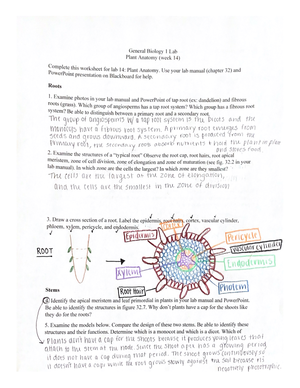 General Biology 1 Lab
Plant Anatomy (week 14)
Complete this worksheet for lab 14: Plant Anatomy. Use your lab manual (chapter 32) and
PowerPoint presentation on Blackboard for help.
Roots
1. Examine photos in your lab manual and PowerPoint of tap root (ex: dandelion) and fibrous
roots (grass). Which group of angiosperms has a tap root system? Which group has a fibrous root
system? Be able to distinguish between a primary root and a secondary root.
The group of angiosperms w/ a tap root system is the eudicots and the
monocots have a fibrous root system. A primary root emerges from
seeds and grows downward. A secondary root is formed from the
primary root, the secondary root absorbs nutrients & holds the plant in place
and stores food.
2. Examine the structures of a "typical root" Observe the root cap, root hairs, root apical
meristem, zone of cell division, zone of elongation and zone of maturation (see fig. 32.2 in your
lab manual). In which zone are the cells the largest? In which zone are they smallest?
The cells are the largest in the zone of elongation,
and the cells are the smallest in the zone of division
3. Draw a cross section of a root. Label the epidermis, root hairs, cortex, vascular cylinder,
phloem, xylem, pericycle, and endodermis.
Cortex
Epidermis
Pericycle
vascular cylinder
ROOT
Endodermis
Xylem
Root Hair
Phloem
Stems
4. Identify the apical meristem and leaf primordial in plants in your lab manual and PowerPoint.
Be able to identify the structures in figure 32.7. Why don't plants have a cap for the shoots like
they do for the roots?
5. Examine the models below. Compare the design of these two stems. Be able to identify these
structures and their functions. Determine which is a monocot and which is a dicot. Which of
Plants don't have a cap for the shoots because it produces young leaves that
attach to the stem at the node. Since the shoot apex has a growing period
it does not have a cap during that period. The shoot grows continuously so
it doesn't have a cap while the root grows slowly against the soil because it is
negatively phototropic.